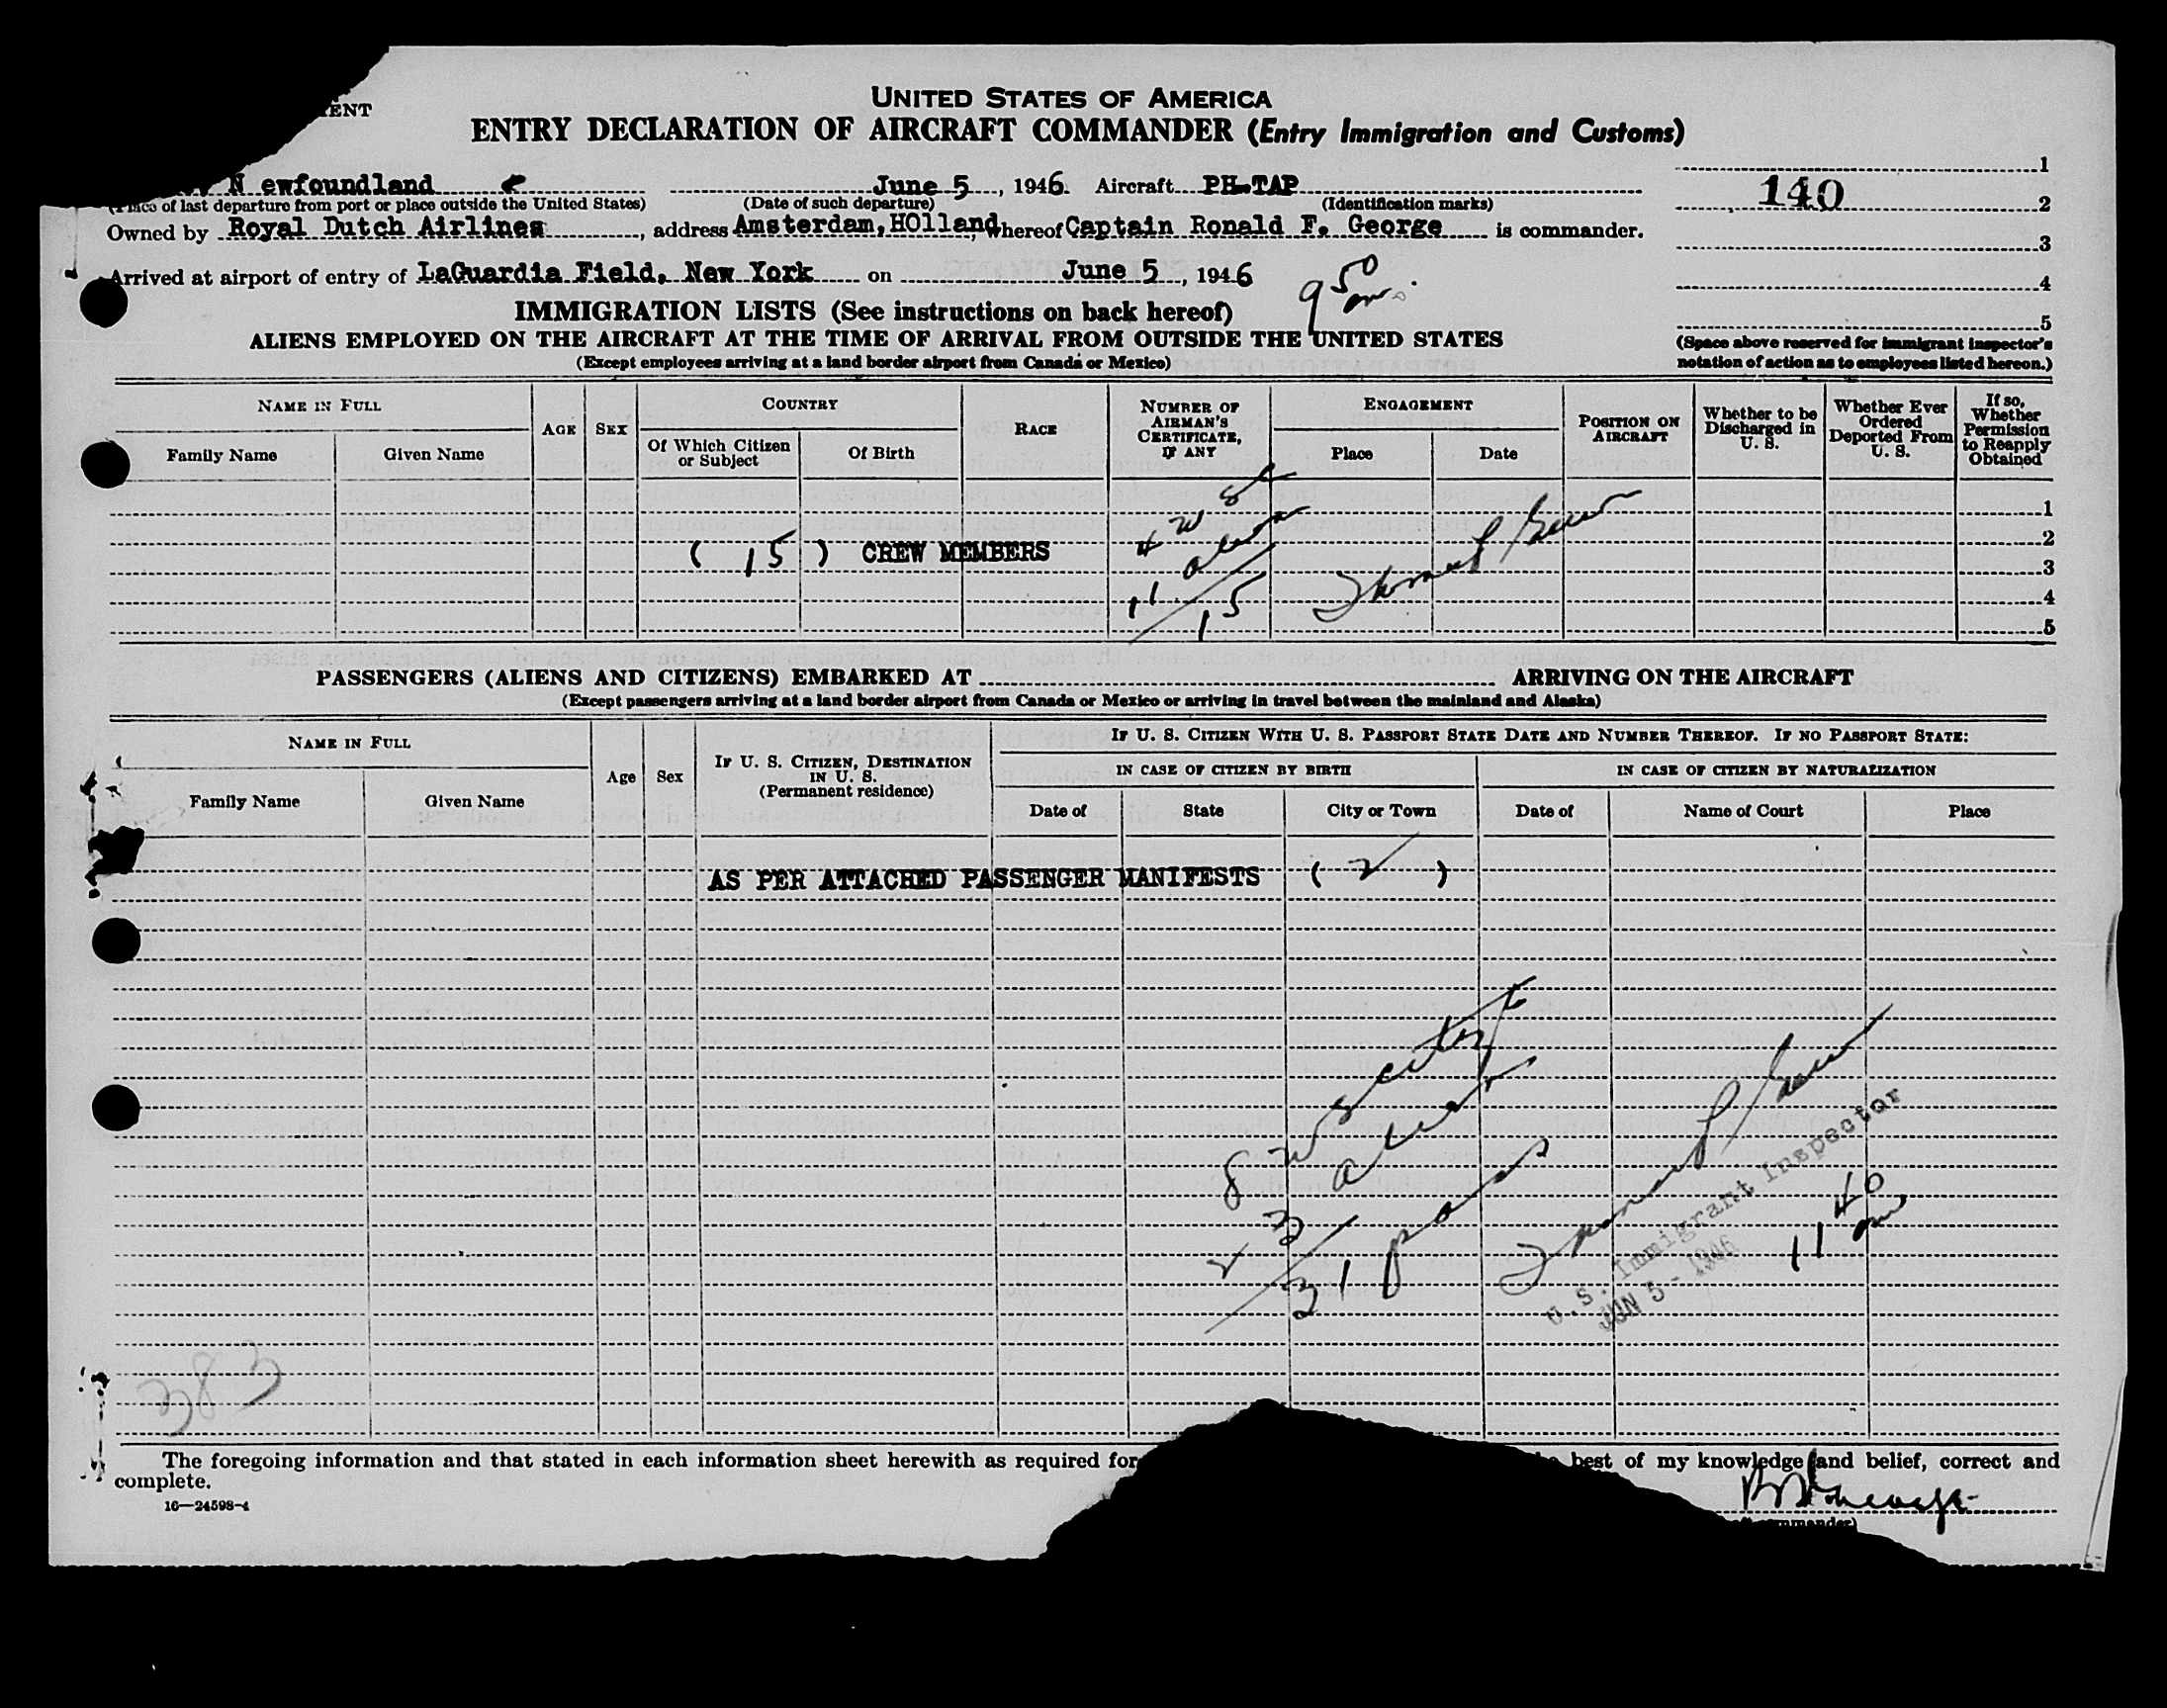 ENT
UNITED STATES OF AMERICA
ENTRY DECLARATION OF AIRCRAFT COMMANDER (Entry Immigration and Customs)
N ewfoundland June 5, 1946. Aircraft PH-TAP
(Place of last departure from port or place outside the United States) (Date of such departure) (Identification marks)
Owned by Royal Dutch Airlines, address Amsterdam, HOlland, whereof Captain Ronald F. George is commander.
Arrived at airport of entry of LaGuardia Field, New York on June 5, 1946
9 50 am.
1
140
2
3
4
5
(Space above reserved for immigrant inspector's
notation of action as to employees listed hereon.)
IMMIGRATION LISTS (See instructions on back hereof)
ALIENS EMPLOYED ON THE AIRCRAFT AT THE TIME OF ARRIVAL FROM OUTSIDE THE UNITED STATES
(Except employees arriving at a land border airport from Canada or Mexico)
NAME IN FULL
Family Name Given Name
AGE SEX
COUNTRY
Of Which Citizen or Subject Of Birth
RACE
NUMBER OF AIRMAN'S CERTIFICATE, IF ANY
ENGAGEMENT
Place Date
POSITION ON AIRCRAFT
Whether to be Discharged in U. S.
Whether Ever Ordered Deported From U. S.
If so, Whether Permission to Reapply Obtained
1
2
3
4
5
( 15 ) CREW MEMBERS
4 U S C
11 alien
15
PASSENGERS (ALIENS AND CITIZENS) EMBARKED AT ARRIVING ON THE AIRCRAFT
(Except passengers arriving at a land border airport from Canada or Mexico or arriving in travel between the mainland and Alaska)
NAME IN FULL
Family Name Given Name
Age Sex
IF U. S. CITIZEN, DESTINATION IN U. S.
(Permanent residence)
IF U. S. CITIZEN WITH U. S. PASSPORT STATE DATE AND NUMBER THEREOF. IF NO PASSPORT STATE:
IN CASE OF CITIZEN BY BIRTH IN CASE OF CITIZEN BY NATURALIZATION
Date of State City or Town Date of Name of Court Place
AS PER ATTACHED PASSENGER MANIFESTS ( 2 )
8 U S
23 alien
31 pass
U.S. Immigrant Inspector
JUN 5 - 1946
11 40 am
383
The foregoing information and that stated in each information sheet herewith as required for best of my knowledge and belief, correct and
complete.
16—24598-4
commander)